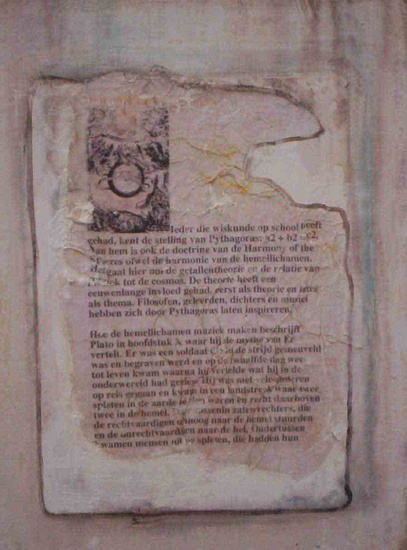 Ieder die wiskunde op school heeft
gehad, kent de stelling van Pythagoras: a2 + b2 = c2.
Van hem is ook de doctrine van de Harmony of the
Speres ofwel de harmonie van de hemellichamen.
Het gaat hier om de getallentheorie en de relatie van
muziek tot de cosmos. De theorie heeft een
eeuwenlange invloed gehad, eerst als theorie en later
als thema. Filosofen, geleerden, dichters en musici
hebben zich door Pythagoras laten inspireren.
Hoe de hemellichamen muziek maken beschrijft
Plato in hoofdstuk X waar hij de mythe van Er
vertelt. Er was een soldaat die in de strijd gesneuveld
was en begraven werd en op de twaalfde dag weer
tot leven kwam waarna hij vertelde wat hij in de
onderwereld had gezien. Hij was met
op reis gegaan en kwam in een landstreek waar twee
spleten in de aarde waren en recht daarboven
twee in de hemel. Daartussenin zaten rechters, die
de rechtvaardigen omhoog naar de hemel stuurden
en de onrechtvaardigen naar de hel. Ondertussen
kwamen mensen uit de spleten, die hadden hun